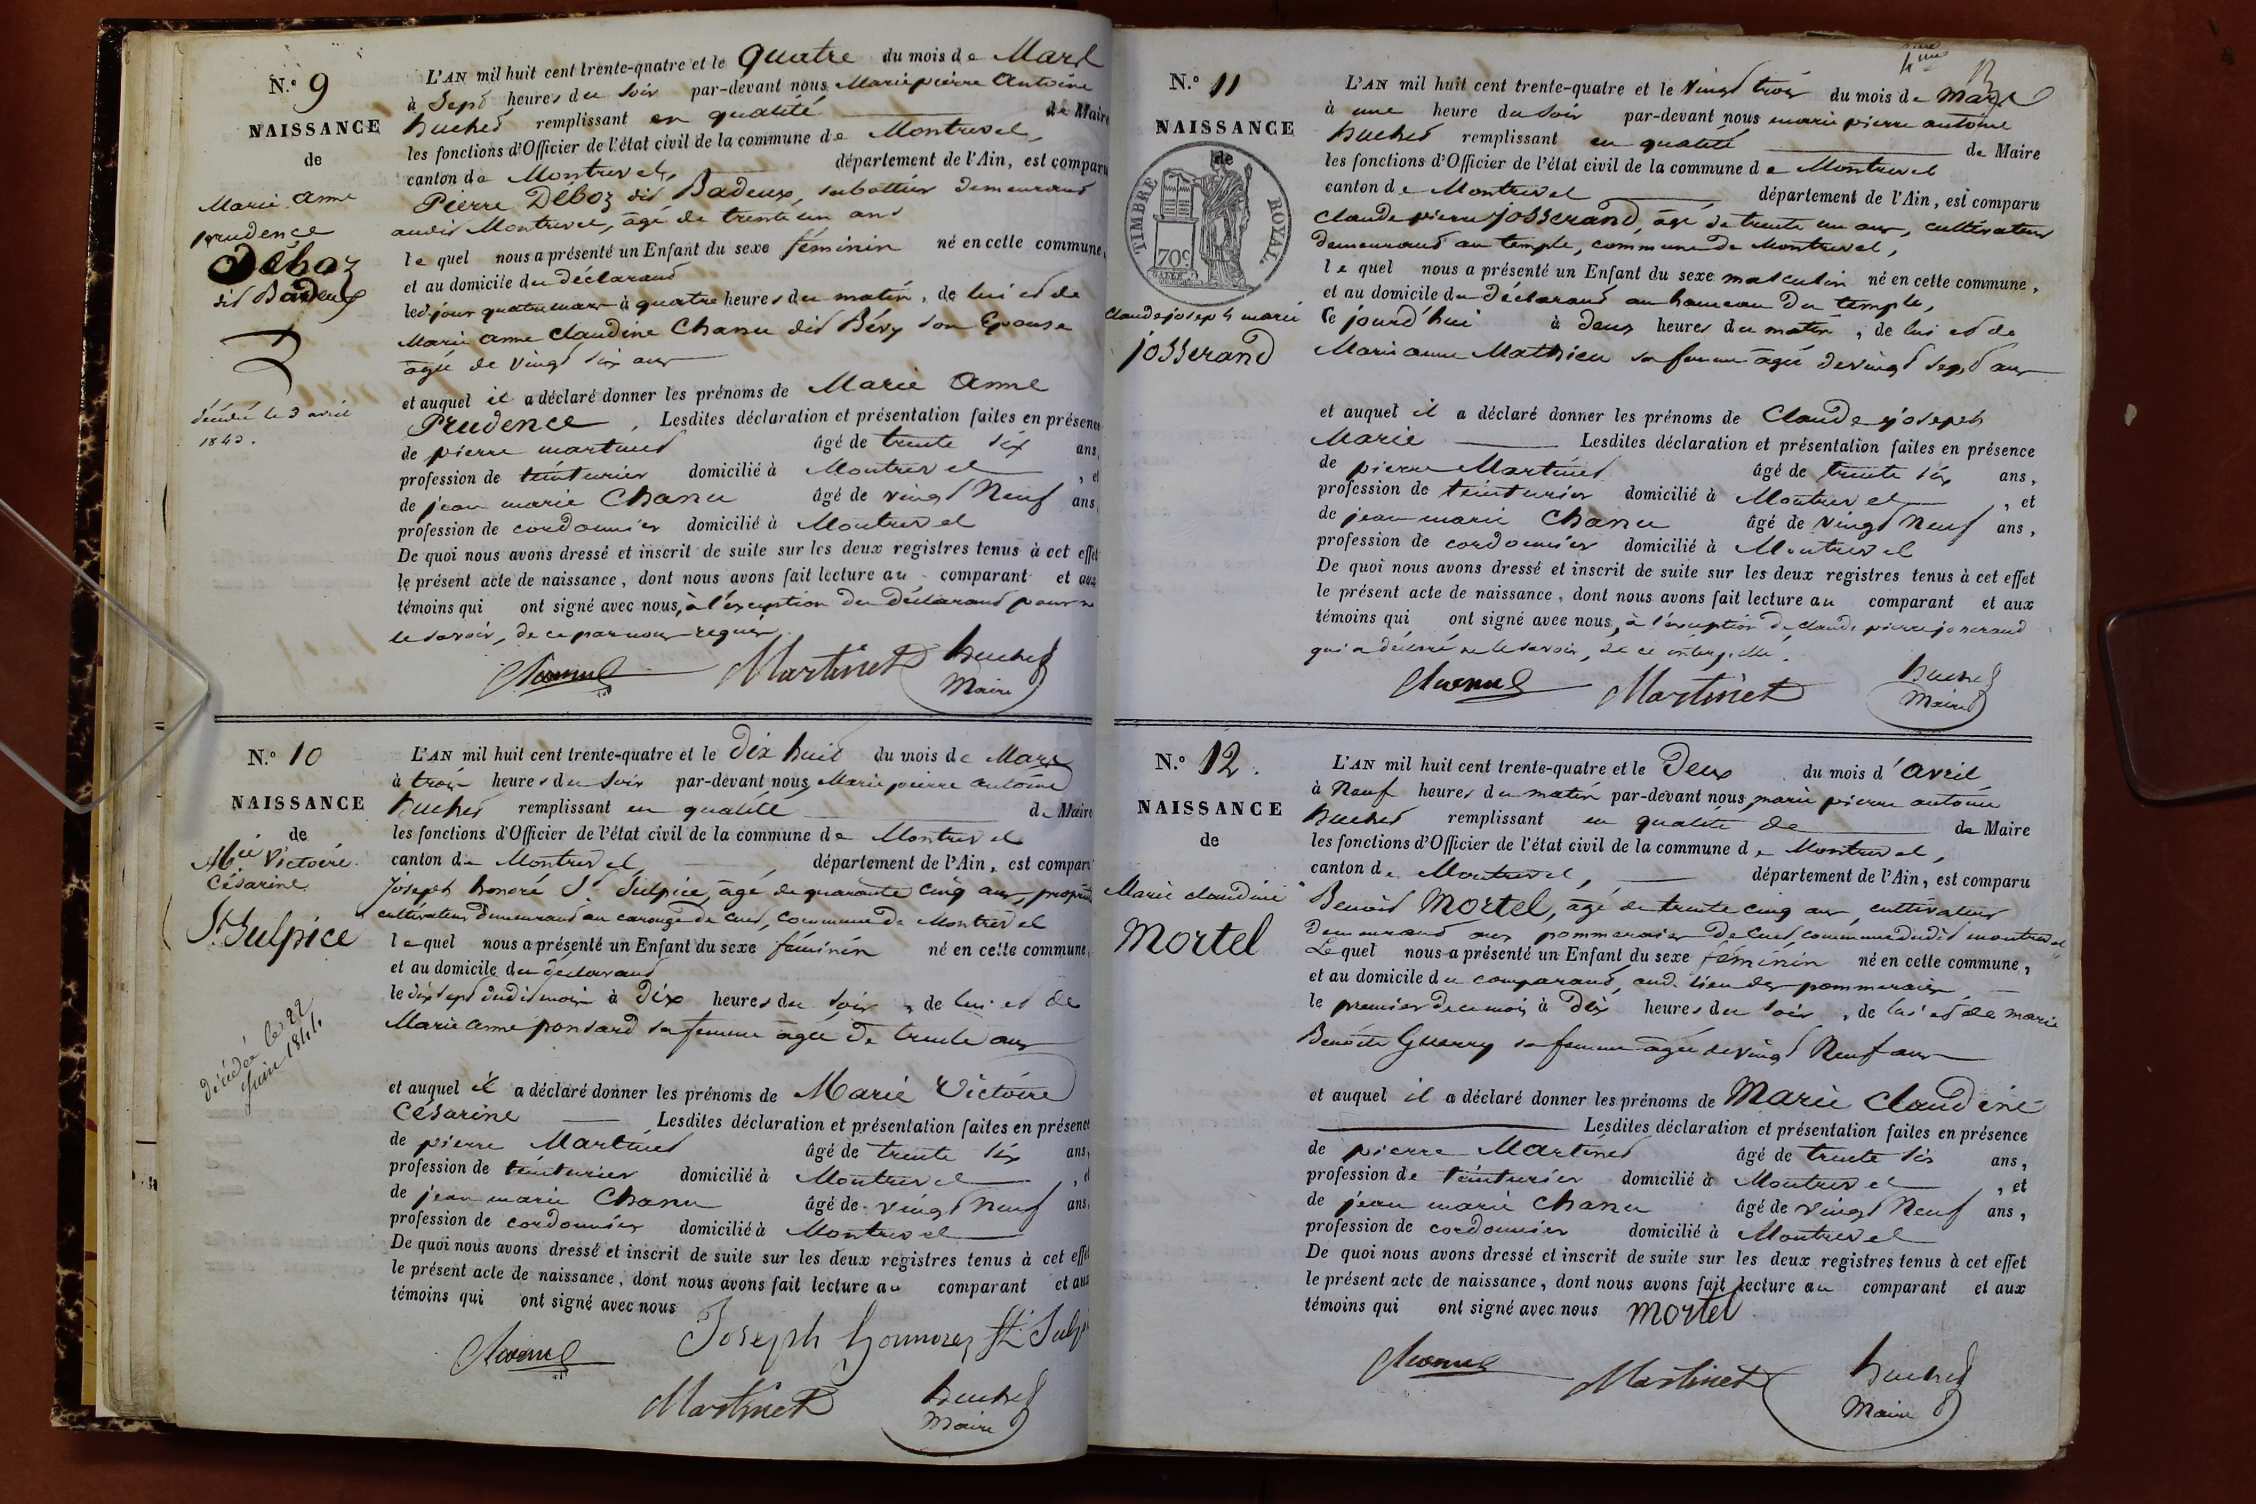 N.° 9
NAISSANCE
de
Marie Anne
prudence
Déboz
dit Badeux
décédée le 3 avril
1843.
L'AN mil huit cent trente-quatre et le quatre du mois de Mars
à Sept heures du soir par-devant nous Marie pierre Antoine
huchet remplissant en qualité de Maire
les fonctions d'Officier de l'état civil de la commune de Montrevel,
canton de Montrevel, département de l'Ain, est comparu
Pierre Déboz dit Badeux, sabottier demeurant
audit Montrevel, âgé de trente un ans
lequel nous a présenté un Enfant du sexe féminin né en cette commune,
et au domicile du déclarant
led. jour quatre mars à quatre heures du matin, de lui et de
Marie anne Claudine Chanu dit Bévy son Epouse
âgée de vingt six ans
et auquel il a déclaré donner les prénoms de Marie Anne
Prudence, Lesdites déclaration et présentation faites en présence
de pierre martinet âgé de trente six ans,
profession de teinturier domicilié à Montrevel, et
de jean marie Chanu âgé de vingt Neuf ans,
profession de cordonnier domicilié à Montrevel
De quoi nous avons dressé et inscrit de suite sur les deux registres tenus à cet effet
le présent acte de naissance, dont nous avons fait lecture au comparant et aux
témoins qui ont signé avec nous, à l'exception du déclarant pour ne
le savoir, de ce par nous requis.
Chanu Martinet huchet
Maire
N.° 10
NAISSANCE
de
Mie Victoire
Césarine
St Sulpice
décédée le 22
juin 1844.
L'AN mil huit cent trente-quatre et le dix huit du mois de Mars
à trois heures du soir par-devant nous Marie pierre antoine
huchet remplissant en qualité de Maire
les fonctions d'Officier de l'état civil de la commune de Montrevel
canton de Montrevel, département de l'Ain, est comparu
Joseph honoré St Sulpice, âgé de quarante cinq ans, propriét.
cultivateur demeurant au carouge de cuet, commune de Montrevel
lequel nous a présenté un Enfant du sexe féminin né en cette commune,
et au domicile du déclarant
le dix sept dudit mois à dix heures du soir, de lui et de
Marie anne ponsard sa femme âgée de trente ans
et auquel il a déclaré donner les prénoms de Marie Victoire
Césarine Lesdites déclaration et présentation faites en présence
de pierre Martinet âgé de trente six ans,
profession de teinturier domicilié à Montrevel, et
de jean marie Chanu âgé de vingt neuf ans,
profession de cordonnier domicilié à Montrevel
De quoi nous avons dressé et inscrit de suite sur les deux registres tenus à cet effet
le présent acte de naissance, dont nous avons fait lecture au comparant et aux
témoins qui ont signé avec nous
Chanu Joseph honnorez St Sulpi
Martinet huchet
Maire
N.° 11
NAISSANCE
de
TIMBRE ROYAL.
70c
Claude joseph marie
josserand
4me
13
L'AN mil huit cent trente-quatre et le vingt trois du mois de Mars
à une heure du soir par-devant nous marie pierre antoine
huchet remplissant en qualité de Maire
les fonctions d'Officier de l'état civil de la commune de Montrevel
canton de Montrevel département de l'Ain, est comparu
Claude pierre josserand, âgé de trente un ans, cultivateur
demeurant au temple, commune de Montrevel,
lequel nous a présenté un Enfant du sexe masculin né en cette commune,
et au domicile du déclarant au hameau du temple,
ce jourd'hui à deux heures du matin, de lui et de
Marie anne Mathieu sa femme âgée de vingt sept ans
et auquel il a déclaré donner les prénoms de Claude joseph
Marie Lesdites déclaration et présentation faites en présence
de pierre Martinet âgé de trente six ans,
profession de teinturier domicilié à Montrevel, et
de jean marie Chanu âgé de vingt Neuf ans,
profession de cordonnier domicilié à Montrevel
De quoi nous avons dressé et inscrit de suite sur les deux registres tenus à cet effet
le présent acte de naissance, dont nous avons fait lecture au comparant et aux
témoins qui ont signé avec nous, à l'exception de claude pierre josserand
qui a déclaré ne le savoir, de ce interpellé.
Chanu Martinet huchet
Maire
N.° 12.
NAISSANCE
de
Marie claudine
Mortel
L'AN mil huit cent trente-quatre et le Deux du mois d'avril
à Neuf heures du matin par-devant nous marie pierre antoine
huchet remplissant en qualité de de Maire
les fonctions d'Officier de l'état civil de la commune de Montrevel,
canton de Montrevel, département de l'Ain, est comparu
Benoit Mortel, âgé de trente cinq ans, cultivateur
demeurant aux pommeraies de cuet, commune dudit montrevel
Lequel nous a présenté un Enfant du sexe féminin né en cette commune,
et au domicile du comparant, aud. lieu des pommeraies
le premier de ce mois à dix heures du soir, de lui et de marie
Benoite Guerry sa femme âgée de vingt Neuf ans
et auquel il a déclaré donner les prénoms de Marie Claudine
Lesdites déclaration et présentation faites en présence
de pierre Martinet âgé de trente six ans,
profession de teinturier domicilié à Montrevel, et
de jean marie Chanu âgé de vingt Neuf ans,
profession de cordonnier domicilié à Montrevel
De quoi nous avons dressé et inscrit de suite sur les deux registres tenus à cet effet
le présent acte de naissance, dont nous avons fait lecture au comparant et aux
témoins qui ont signé avec nous Mortel
Chanu Martinet huchet
Maire